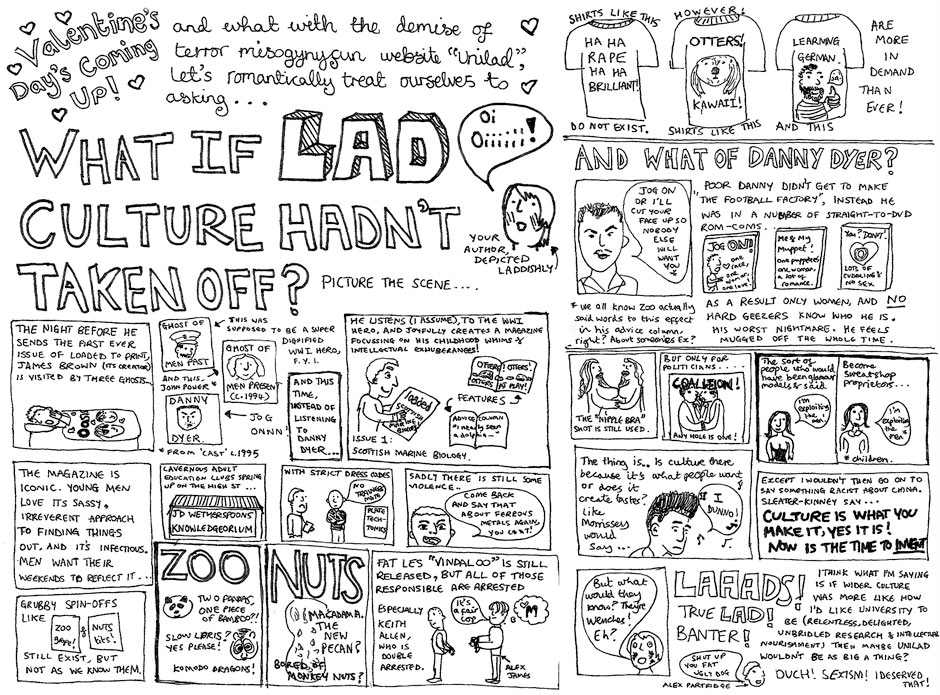 Valentine's
Day's Coming
UP!
and what with the demise of
terror misogynygun website "Unilad",
Let's romantically treat ourselves to
asking...
WHAT IF LAD
CULTURE HADN'T
TAKEN OFF?
Oi
Oiiiiii!
YOUR
AUTHOR,
DEPICTED
LADDISHLY!
PICTURE THE SCENE....
THE NIGHT BEFORE HE
SENDS THE FIRST EVER
ISSUE OF LOADED TO PRINT,
JAMES BROWN (ITS CREATOR)
IS VISITED BY THREE GHOSTS...
GHOST OF
MEN PAST
THIS WAS
SUPPOSED TO BE A SUPER
DIGNIFIED
WWI HERO,
F.Y.I.
GHOST OF
MEN PRESENT
(c.1994)
AND THIS,
TOM POWER*
DANNY
DYER.
JOG
ONNN!
*FROM 'CAST' c.1995
AND THIS
TIME,
INSTEAD OF
LISTENING
TO
DANNY
DYER...
HE LISTENS (I ASSUME), TO THE WWI
HERO, AND JOYFULLY CREATES A MAGAZINE
FOCUSSING ON HIS CHILDHOOD WHIMS &
INTELLECTUAL EXHUBERANCES!
loaded
SCOTTISH
MARINE
BIOLOGY
OTTERS! OTTERS!
OTTERS AT PLAY!
FEATURES
ADVICE COLUMN
"I nearly seen
a dolphin..."
ISSUE 1:
SCOTTISH MARINE BIOLOGY.
THE MAGAZINE IS
ICONIC. YOUNG MEN
LOVE ITS SASSY,
IRREVERENT APPROACH
TO FINDING THINGS
OUT, AND IT'S INFECTIOUS.
MEN WANT THEIR
WEEKENDS TO REFLECT IT...
CAVERNOUS ADULT
EDUCATION CLUBS SPRING
UP ON THE HIGH ST...
JD WETHERSPOONS'
KNOWLEDGEORIUM
WITH STRICT DRESS CODES
NO
TRAINERS
MATE
PLATE
TECH-
TONICS
SADLY THERE IS STILL SOME
VIOLENCE..
COME BACK
AND SAY THAT
ABOUT FERROUS
METALS AGAIN,
YOU CXNT!
GRUBBY SPIN-OFFS
LIKE
ZOO
&
NUTS
STILL EXIST, BUT
NOT AS WE KNOW THEM.
ZOO
TWO PANDAS,
ONE PIECE
OF BAMBOO?!
SLOW LORIS?
YES PLEASE!
KOMODO DRAGONS!
NUTS
MACADAMIA.
THE
NEW
PECAN?
BORED OF
MONKEY NUTS?
FAT LES "VINDALOO" IS STILL
RELEASED, BUT ALL OF THOSE
RESPONSIBLE ARE ARRESTED
ESPECIALLY
KEITH
ALLEN,
WHO IS
DOUBLE
ARRESTED.
It's a
fair
cop
ALEX
JAMES
SHIRTS LIKE THIS
HA HA
RAPE
HA HA
BRILLIANT!
DO NOT EXIST.
HOWEVER!
OTTERS!
KAWAII!
SHIRTS LIKE THIS
LEARNING
GERMAN.
JA!
AND THIS
ARE
MORE
IN
DEMAND
THAN
EVER!
AND WHAT OF DANNY DYER?
JOG ON
OR I'LL
CUT YOUR
FACE UP SO
NOBODY
ELSE
WILL
WANT
YOU*
POOR DANNY DIDN'T GET TO MAKE
"THE FOOTBALL FACTORY", INSTEAD HE
WAS IN A NUMBER OF STRAIGHT-TO-DVD
ROM-COMS.
JOG ON!
one love!
Me & My
Muppet!
One puppeteer
one woman,
a lot of
romance.
You? Don't!
LOTS OF
CUDDLING &
NO SEX
*we all know Zoo actually
said words to this effect
in his advice column,
right? About someone's Ex?
AS A RESULT ONLY WOMEN, AND NO
HARD GEEZERS KNOW WHO HE IS.
HIS WORST NIGHTMARE. HE FEELS
MUGGED OFF THE WHOLE TIME.
THE "NIPPLE BRA"
SHOT IS STILL USED.
BUT ONLY FOR
POLITICIANS...
COALITION!
ANY HOLE IS ONE!
The sort of
people who would
have been glamour
models & said
I'm
exploiting the
men
Become
sweatshop
proprietors...
I'm
exploiting
the
men*
*children.
The thing is.. is culture there
because it's what people want
or does it
create taste?
Like
Morrissey
would
say...
I
DUNNO!
EXCEPT I WOULDN'T THEN GO ON TO
SAY SOMETHING RACIST ABOUT CHINA.
SLEATER-KINNEY SAY...
CULTURE IS WHAT YOU
MAKE IT, YES IT IS!
NOW IS THE TIME TO INVENT
But what
would they
know? They're
Wenches!
Eh?
LAAADS!
TRUE LAD!
BANTER!
SHUT UP
YOU FAT
UGLY DOG
ALEX PARTRIDGE
I THINK WHAT I'M SAYING
IS IF WIDER CULTURE
WAS MORE LIKE HOW
I'D LIKE UNIVERSITY TO
BE (RELENTLESS, DELIGHTED,
UNBRIDLED RESEARCH & INTELLECTUAL
NOURISHMENT) THEN MAYBE UNILAD
WOULDN'T BE AS BIG A THING?
OUCH! SEXISM! I DESERVED
THAT!